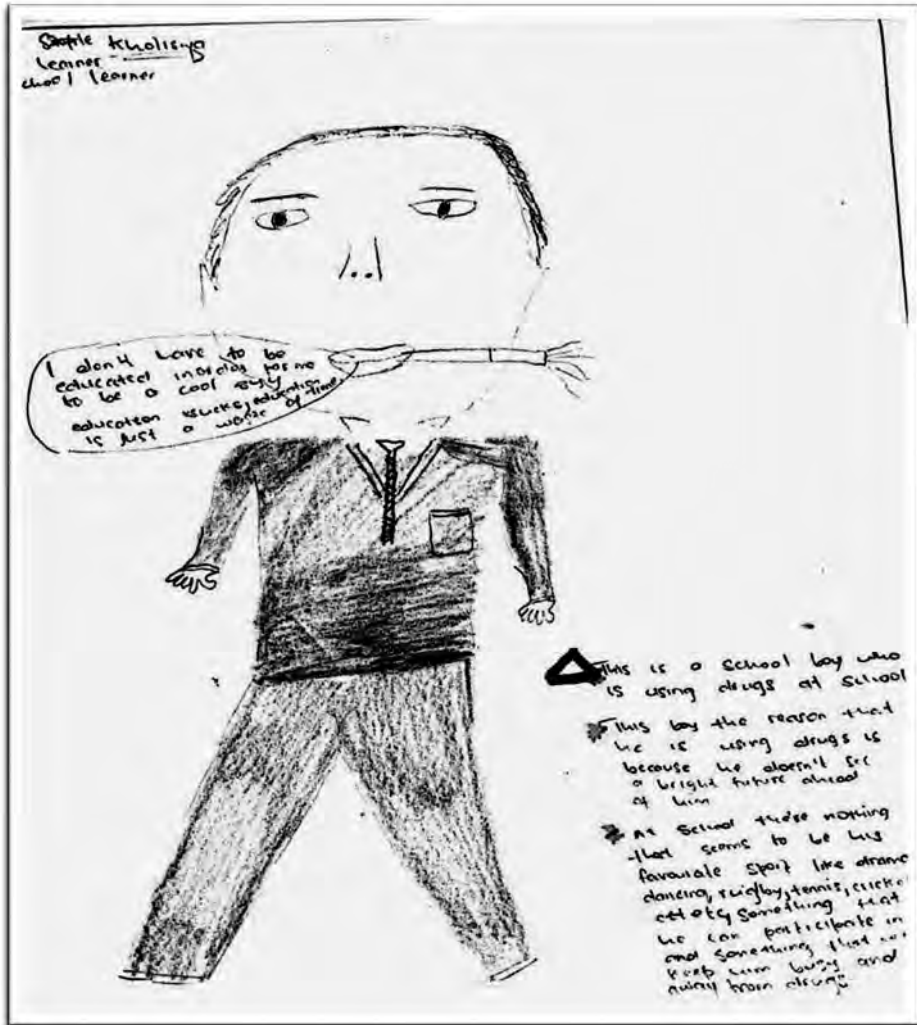 Kholiswa
learner -
chool learner
I don't have to be
educated inorder for me
to be a cool guy
education sucks, education
is just a waste of time.
This is a school boy who
is using drugs at school
This boy the reason that
he is using drugs is
because he doesn't see
a bright future ahead
of him
At school there nothing
that seems to be his
favourate sport like drama
dancing, rugby, tennis, cricke
something that
he can participate in
and something that
keep him busy and
away from drugs